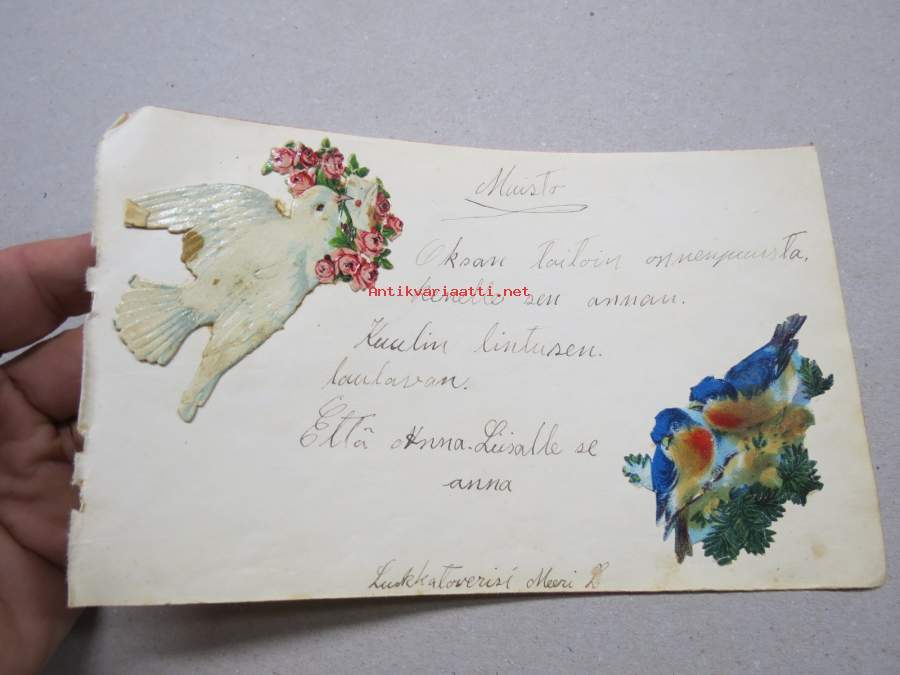 Muisto
Oksan taitoin onnenpuusta,
kenelle sen annan.
Antikvariaatti.net
Kuulin lintusen.
laulavan.
Että Anna-Liisalle se
anna
Luokkatoverisi Meeri L